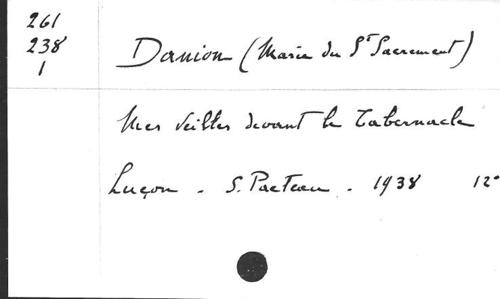 261
238
1
Danion (Marie du St Sacrement)
Mes veilles devant le Tabernacle
Luçon - S. Pacteau - 1938 12°